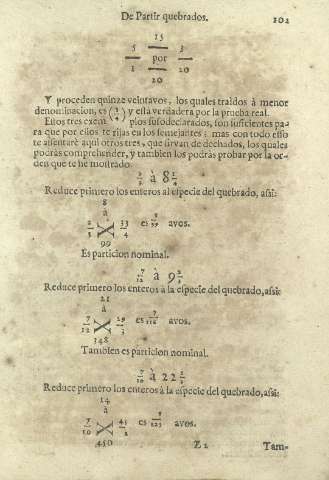 De Partir quebrados. 102
15
5 3
— por —
1 20
20
Y proceden quinze veintavos, los quales traidos à menor
denominacion, es (3/4) y esta verdadera por la prueba real.
Estos tres exemplos susodeclarados, son suficientes pa-
ra que por ellos te rijas en los semejantes: mas con todo esso
te assentarè aqui otros tres, que sirvan de dechados, los quales
podràs comprehender, y tambien los podràs probar por la or-
den que te hè mostrado.
à 8
Reduce primero los enteros al especie del quebrado, assi:
8
à
2/3 33/4 es 8/99 avos.
99
Es particion nominal.
7/12 à 9 2/3
Reduce primero los enteros à la especie del quebrado, assi:
21
à
7/12 29/3 es 7/116 avos.
348
Tambien es particion nominal.
7/10 à 22 1/2
Reduce primero los enteros à la especie del quebrado, assi:
14
à
7/10 45/2 es 7/225 avos.
450
Z 2 Tam-